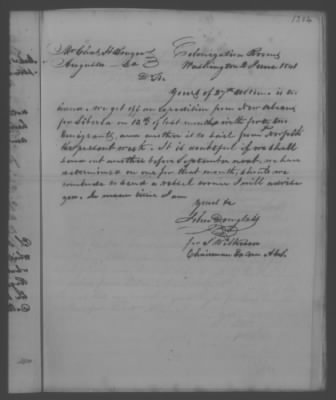 1214
Mr Chas H
Augusta Ga
Colonization Rooms
Washington June 1841
D Sir
Yours of 27th ultimo is at
hand. We got off an expedition from New Orleans
for Liberia on 12th of last month with forty two
Emigrants, and another is to sail from Norfolk
the present week. It is doubtful if we shall
send out another before September next, we have
determined on one for that month, should we
conclude to send a vessel sooner I will advise
you. In mean time I am
Yours &c
John
for S Wilkeson
Chairman Ex Com A.C.S.